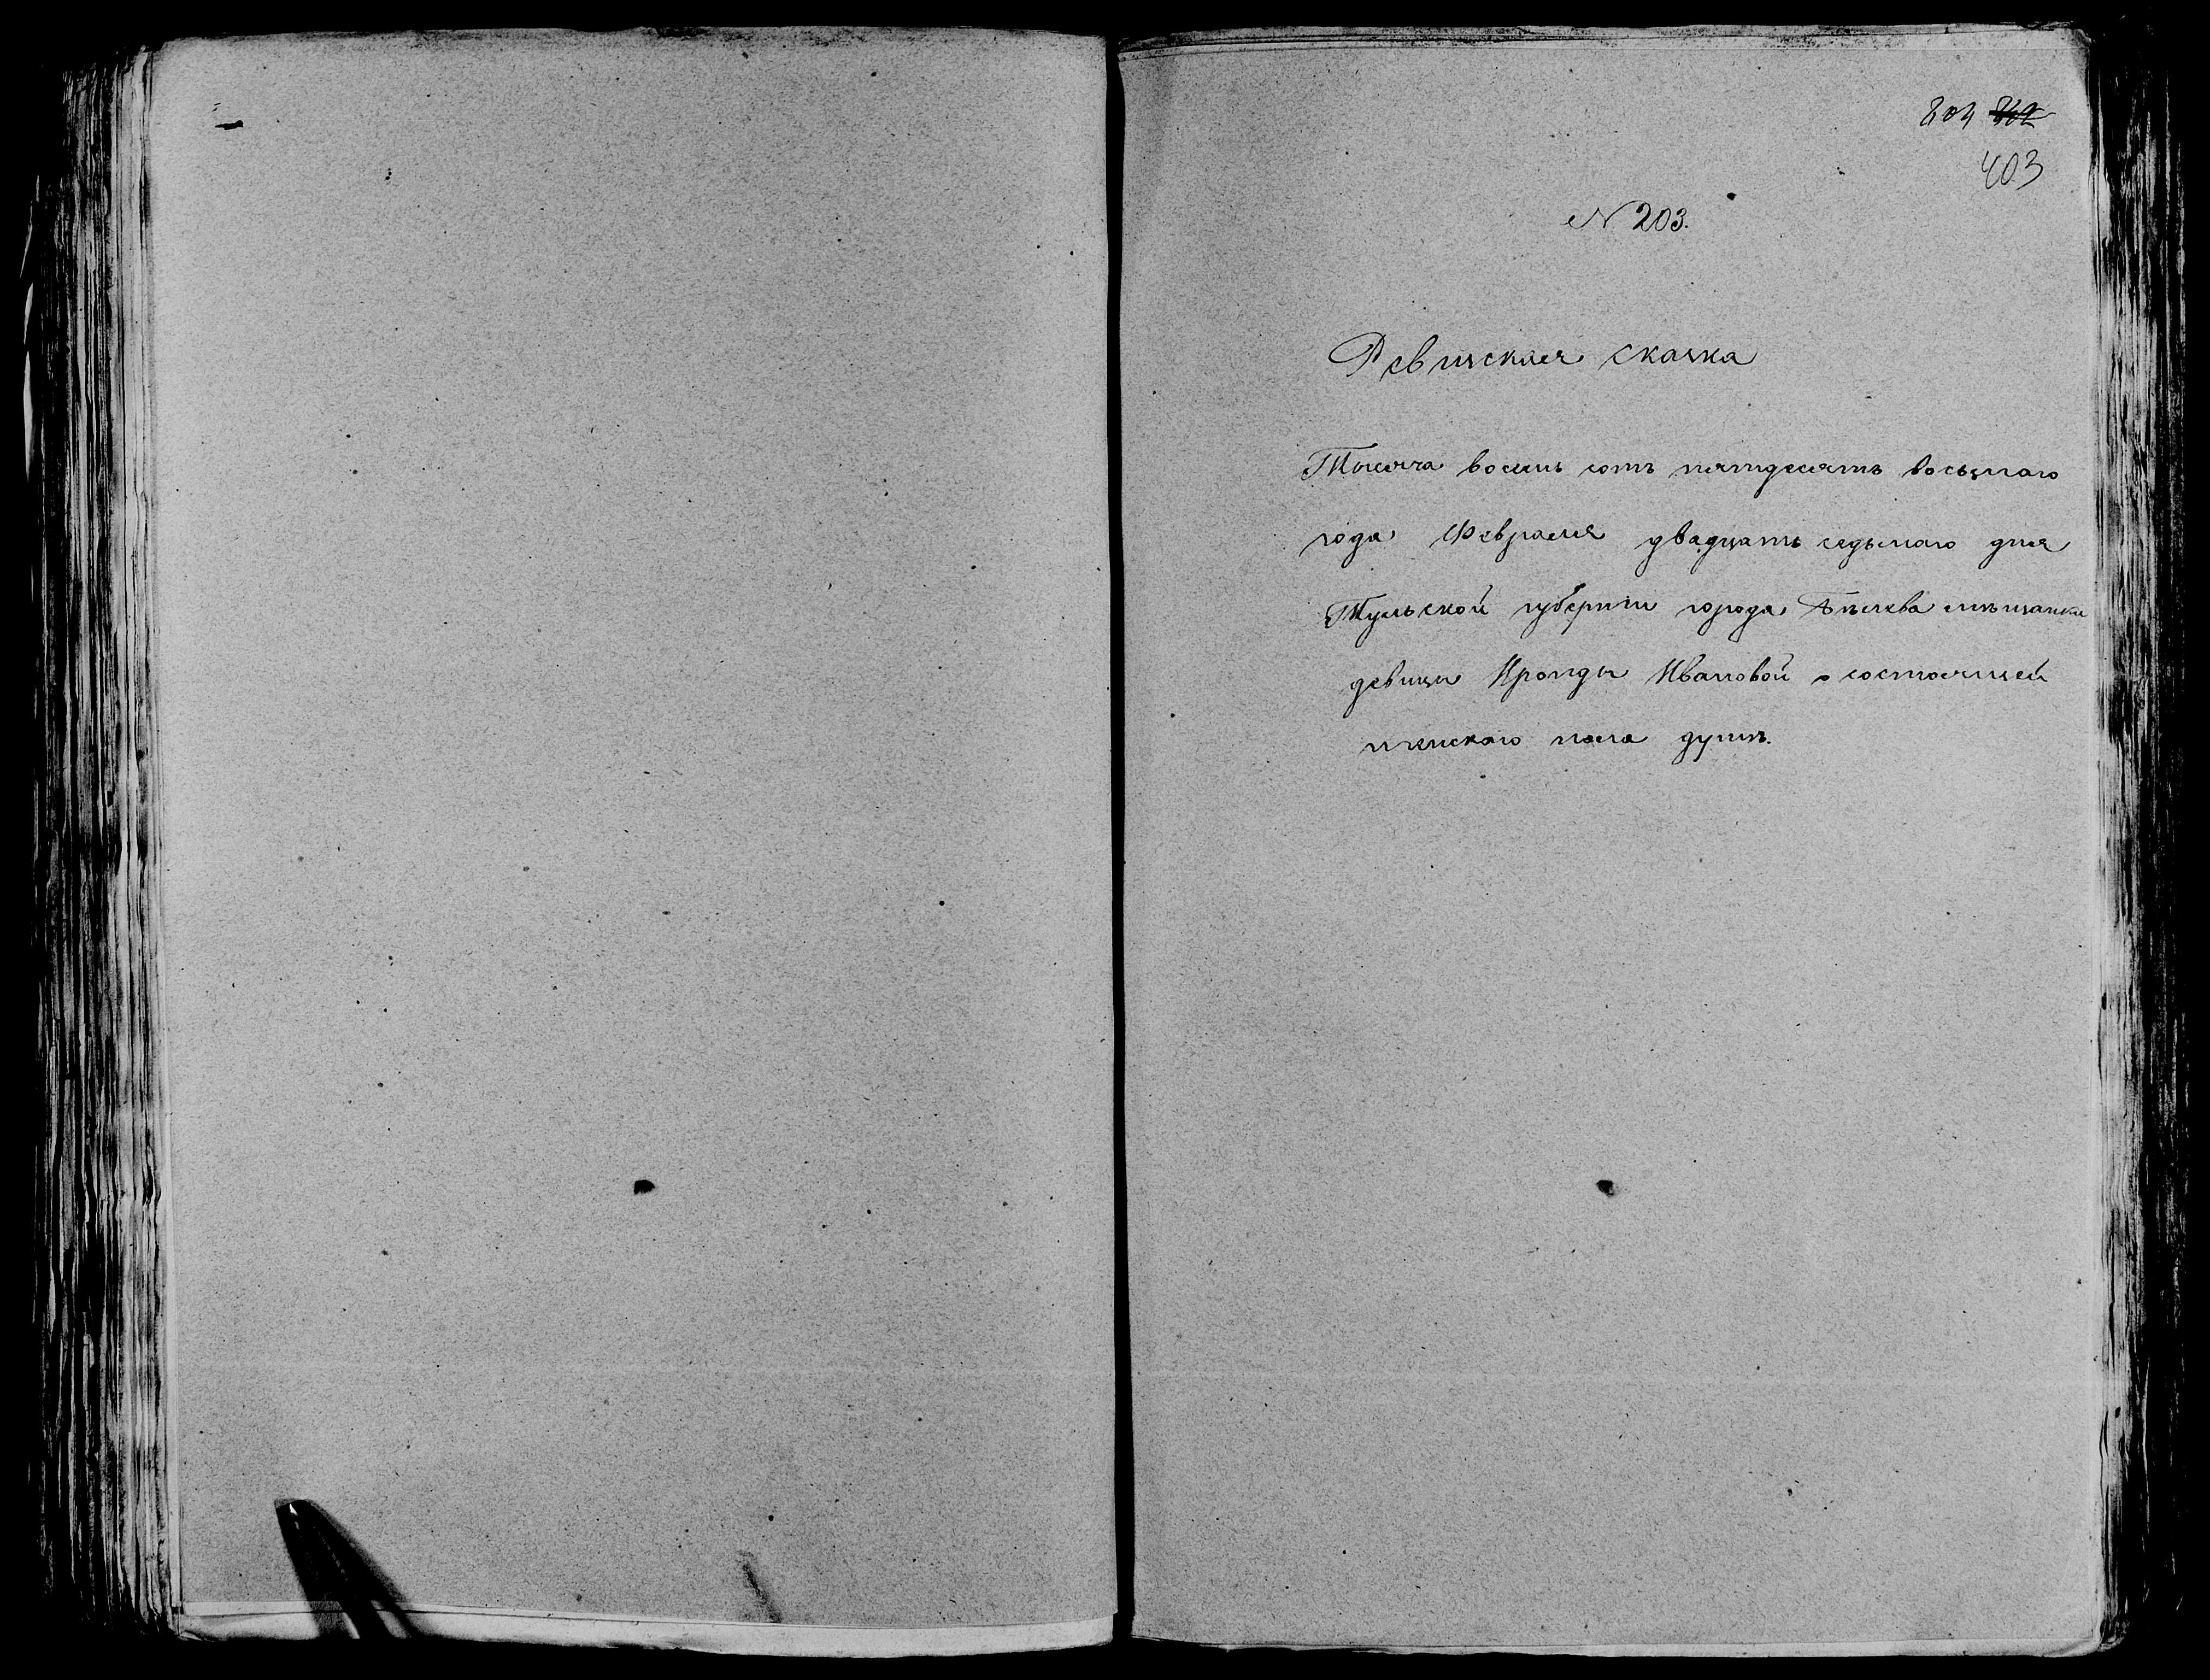 404
403
N 203.
Ревизская сказка
Тысяча восемь сотъ пятьдесятъ восьмаго
года Февраля двадцать седьмаго дня
Тульской губерніи города Бѣлева мѣщанки
девицы Ироиды Ивановой о состоящей
женскаго пола душѣ.